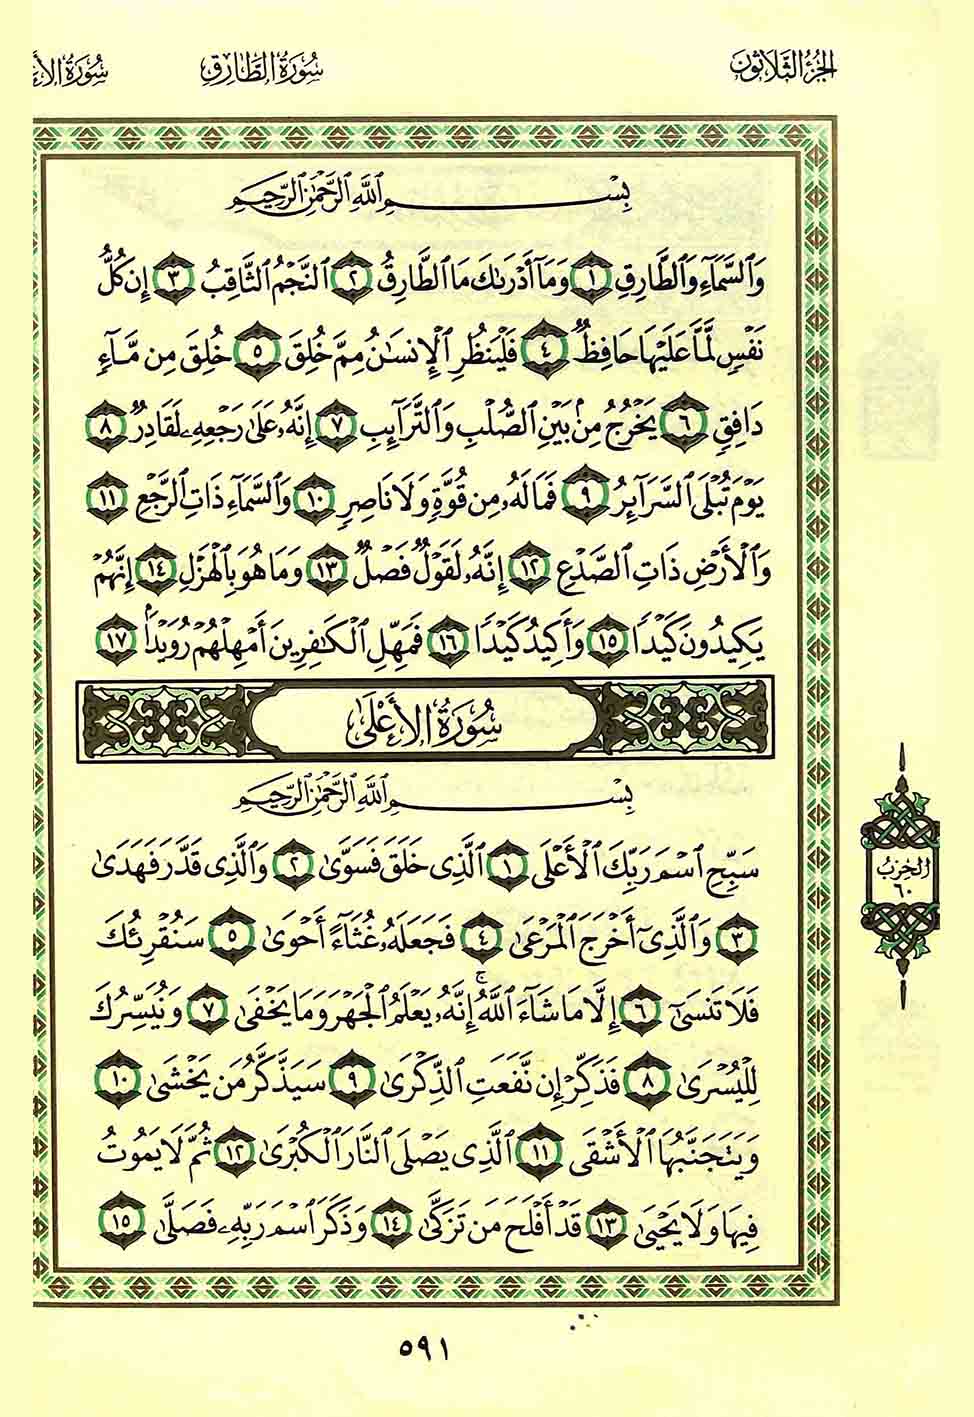 الجزء الثلاثون سورة الطارق سورة الأع
بِسْمِ ٱللَّهِ ٱلرَّحْمَٰنِ ٱلرَّحِيمِ
وَٱلسَّمَآءِ وَٱلطَّارِقِ ١ وَمَآ أَدْرَىٰكَ مَا ٱلطَّارِقُ ٢ ٱلنَّجْمُ ٱلثَّاقِبُ ٣ إِن كُلُّ
نَفْسٍ لَّمَّا عَلَيْهَا حَافِظٌ ٤ فَلْيَنظُرِ ٱلْإِنسَٰنُ مِمَّ خُلِقَ ٥ خُلِقَ مِن مَّآءٍ
دَافِقٍ ٦ يَخْرُجُ مِنۢ بَيْنِ ٱلصُّلْبِ وَٱلتَّرَآئِبِ ٧ إِنَّهُۥ عَلَىٰ رَجْعِهِۦ لَقَادِرٌ ٨
يَوْمَ تُبْلَى ٱلسَّرَآئِرُ ٩ فَمَا لَهُۥ مِن قُوَّةٍ وَلَا نَاصِرٍ ١٠ وَٱلسَّمَآءِ ذَاتِ ٱلرَّجْعِ ١١
وَٱلْأَرْضِ ذَاتِ ٱلصَّدْعِ ١٢ إِنَّهُۥ لَقَوْلٌ فَصْلٌ ١٣ وَمَا هُوَ بِٱلْهَزْلِ ١٤ إِنَّهُمْ
يَكِيدُونَ كَيْدًا ١٥ وَأَكِيدُ كَيْدًا ١٦ فَمَهِّلِ ٱلْكَٰفِرِينَ أَمْهِلْهُمْ رُوَيْدًۢا ١٧
سُورَةُ الأَعْلَىٰ
بِسْمِ ٱللَّهِ ٱلرَّحْمَٰنِ ٱلرَّحِيمِ
سَبِّحِ ٱسْمَ رَبِّكَ ٱلْأَعْلَى ١ ٱلَّذِى خَلَقَ فَسَوَّىٰ ٢ وَٱلَّذِى قَدَّرَ فَهَدَىٰ
٣ وَٱلَّذِىٓ أَخْرَجَ ٱلْمَرْعَىٰ ٤ فَجَعَلَهُۥ غُثَآءً أَحْوَىٰ ٥ سَنُقْرِئُكَ
فَلَا تَنسَىٰٓ ٦ إِلَّا مَا شَآءَ ٱللَّهُ ۚ إِنَّهُۥ يَعْلَمُ ٱلْجَهْرَ وَمَا يَخْفَىٰ ٧ وَنُيَسِّرُكَ
لِلْيُسْرَىٰ ٨ فَذَكِّرْ إِن نَّفَعَتِ ٱلذِّكْرَىٰ ٩ سَيَذَّكَّرُ مَن يَخْشَىٰ ١٠
وَيَتَجَنَّبُهَا ٱلْأَشْقَى ١١ ٱلَّذِى يَصْلَى ٱلنَّارَ ٱلْكُبْرَىٰ ١٢ ثُمَّ لَا يَمُوتُ
فِيهَا وَلَا يَحْيَىٰ ١٣ قَدْ أَفْلَحَ مَن تَزَكَّىٰ ١٤ وَذَكَرَ ٱسْمَ رَبِّهِۦ فَصَلَّىٰ ١٥
الحزب
٦٠
٥٩١